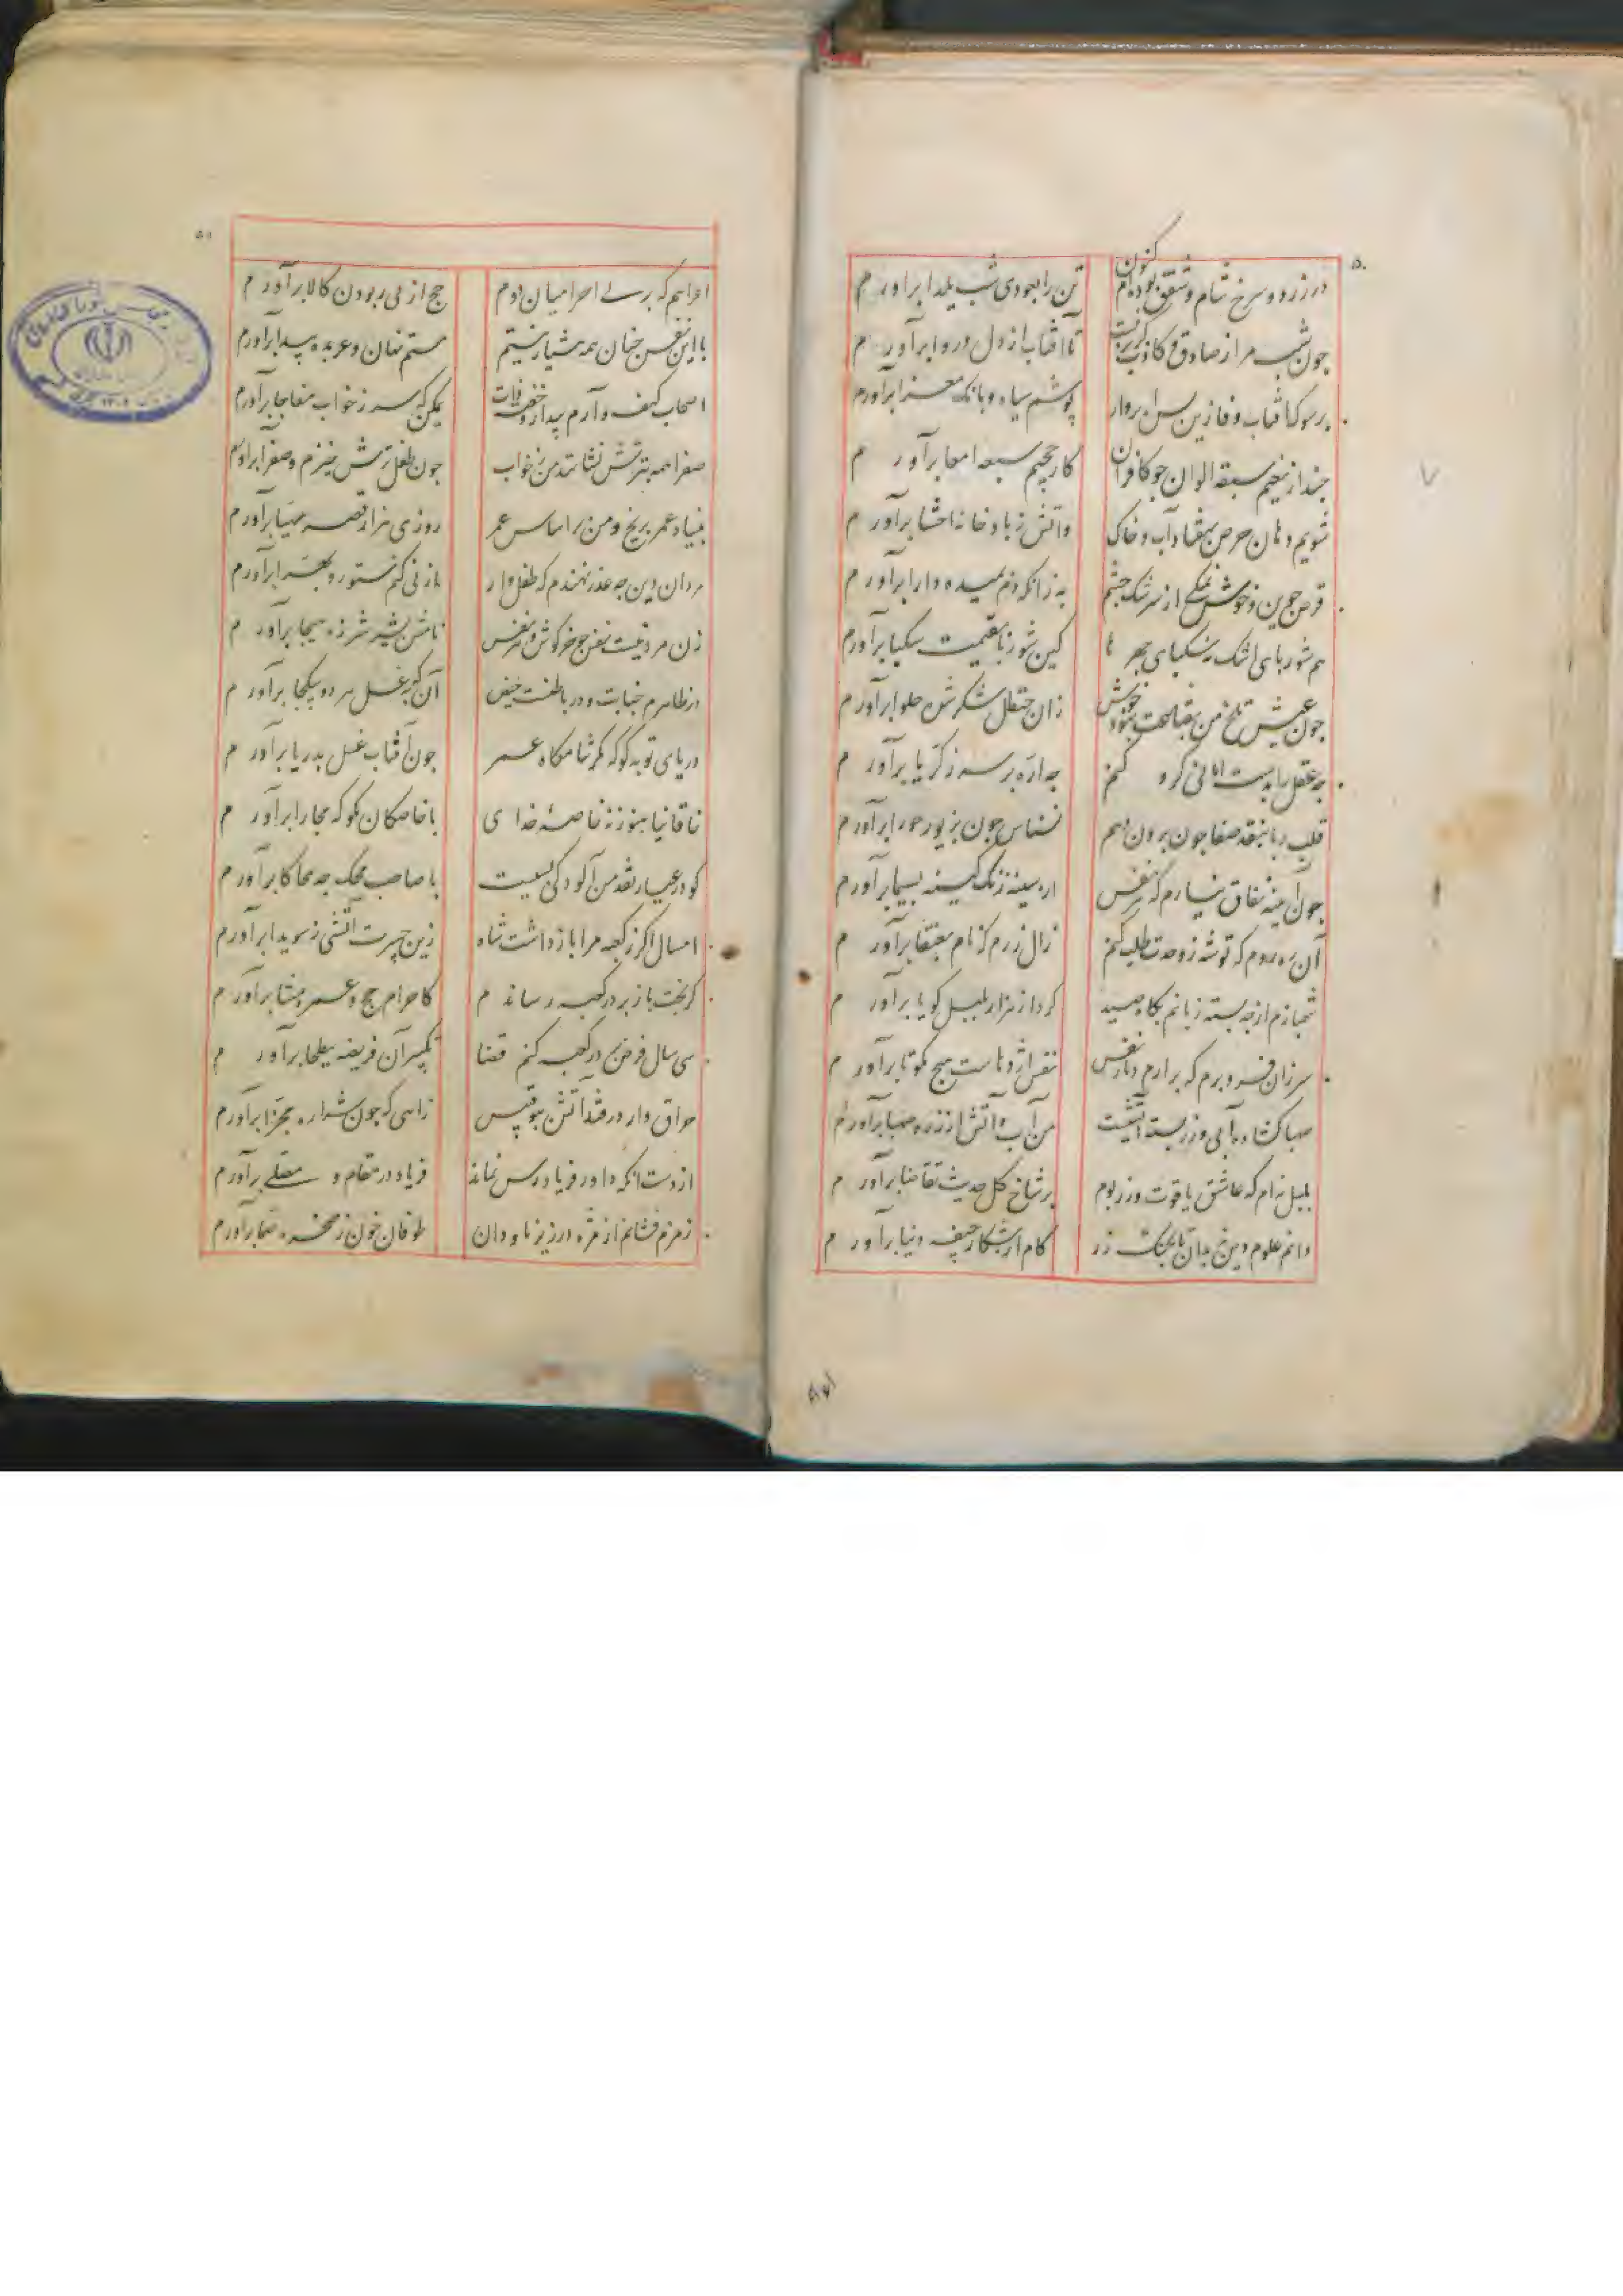 ۵۰
در زرد و سرخ شام و شفق بوده‌ام کنون تن را بعودی شب یلدا برآورم
چون شب مرا ز صادق و کاذب گریز نیست تا آفتاب از دل دروا برآورم
پوشم سیاه و بانک معزا برآورم
چند از نعیم سبعه الوان چو کافران کار جحیم سبعه امعا برآورم
شویم دهان حرص بهفتاد آب و خاک و آتش ز بادخانه احشا برآورم
قرص جوین و خوش نمکی از سرشک چشم به زانکه دم بمیده دارا برآورم
هم شوربای اشک نه سکبای چهره ها کین شوربا بقیمت سکبا برآورم
چون عیش تلخ من بقناعت نبود خوش زان حنظل شکر شده حلوا برآورم
چه عقل را بدست امانی گرو کنم چه اره بر سر زکریا برآورم
قلب ریا بنقد صفا چون برون دهم نسناس چون بزیور حورا برآورم
چون آینه نفاق نیارم که هر نفس از سینه زنک کینه بسیما برآورم
آن ره روم که توشه ز وحدت طلب کنم زال زرم که نام بعنقا برآورم
شهبازم ارچه بسته زبانم بگاه صید گرد از هزار بلبل گویا برآورم
سر زان فرو برم که برآرم دمار نفس نفس اژدهاست هیچ مگو تا برآورم
صهبا گشاده آبی و زر بسته آتشیست من آب و آتش از زر و صهبا برآورم
بلبل نه‌ام که عاشق یاقوت و زر بوم بر شاخ گل حدیث تقاضا برآورم
دانم علوم دین نه بدان تا بچنک زر کام از شکار جیفه دنیا برآورم
۵۱
اعرابیم که بر پی احرامیان دوم حج از پی ربودن کالا برآورم
با این نفس چنان همه هشیار نیستم مستم نهان و عربده پیدا برآورم
اصحاب کهف وارم بیدار و خفته ذات ممکن که سر ز خواب مفاجا برآورم
صفرا همه بترش نشانند و من ز خواب چون طفل ترش خیزم و صفرا برآورم
بنیاد عمر بر یخ و من بر اساس عمر روزی هزار قصر مهیا برآورم
مردان دین چه عذر نهندم که طفل وار از نی کنم ستور و بهرا برآورم
زن مرد نیست نفس چو خرگوش و هر نفس نامش بشیر شرزه هیجا برآورم
در ظاهرم جنابت و در باطنست حیض آن به که غسل هر دو بیکجا برآورم
دریای توبه کو که مگر شامگاه عمر چون آفتاب غسل بدریا برآورم
خاقانیا هنوز نه خاصهٔ خدای با خاصگان مگو که مجارا برآورم
گو در عیار نقد من آلودگی بسیست با صاحب محک چه محاکا برآورم
امسال اگر ز کعبه مرا باز داشت شاه زین حسرت آتشی ز سویدا برآورم
گر بخت باز بر در کعبه رساندم کاحرام حج و عمره مثنا برآورم
سی سال فرض بر در کعبه کنم قضا تکبیر آن فریضه ببطحا برآورم
حراق وار درفتد آتش ببوقبیس زآهی که چون شراره مجزا برآورم
از دست آنکه داور فریادرس نماند فریاد در مقام و مصلی برآورم
زمزم فشانم از مژه در زیر ناودان طوفان خون ز صخره صما برآورم